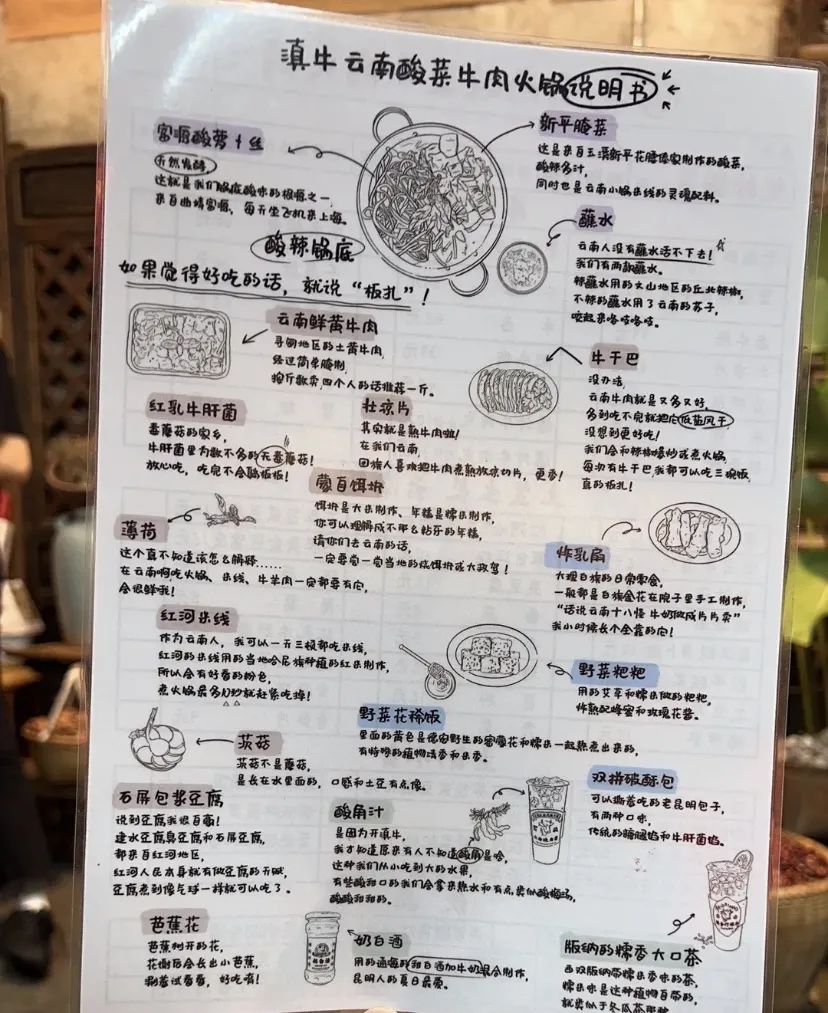 滇牛云南酸菜牛肉火锅说明书
富源酸萝卜丝
天然发酵,
这就是我们锅底酸味的根源之一,
来自曲靖富源, 每天坐飞机来上海。
新平腌菜
这是来自玉溪新平花腰傣家制作的酸菜,
酸辣多汁,
同时也是云南小锅米线的灵魂配料。
酸辣锅底
蘸水
云南人没有蘸水活不下去!
我们有两款蘸水。
辣蘸水用的文山地区的丘北辣椒,
不辣的蘸水用了云南的苏子,
咬起来咯吱咯吱。
如果觉得好吃的话, 就说“板扎”!
云南鲜黄牛肉
寻甸地区的土黄牛肉,
经过简单腌制,
按斤数卖,四个人的话推荐一斤。
牛干巴
没办法,
云南牛肉就是又多又好,
多到吃不完就把它低盐风干
没想到更好吃!
我们会和辣椒爆炒或煮火锅,
每次有牛干巴,我都可以吃三碗饭,
真的板扎!
红乳牛肝菌
毒蘑菇的家乡,
牛肝菌里为数不多的无毒蘑菇!
放心吃, 吃完不会躺板板!
壮凉片
其实就是熟牛肉啦!
在我们云南,
回族人喜欢把牛肉煮熟放凉切片, 更香!
蒙自饵块
饵块是大米制作、年糕是糯米制作,
你可以理解成不那么粘牙的年糕,
请你们去云南的话,
一定要尝一尝当地的烧饵块或大救驾!
薄荷
这个真不知道该怎么解释……
在云南啊吃火锅、米线、牛羊肉一定都要有它,
会很鲜我!
炸乳扇
大理白族的日常零食,
一般都是白族金花在院子里手工制作,
“话说云南十八怪 牛奶做成片片卖”
我小时候长个全靠的它!
红河米线
作为云南人, 我可以一天三顿都吃米线,
红河的米线用的当地哈尼族种植的红米制作,
所以会有好看的粉色,
煮火锅最多10秒就赶紧吃掉!
野菜粑粑
用的艾草和糯米做的粑粑,
炸熟配蜂蜜和玫瑰花酱。
野菜花稀饭
里面的黄色是德宏野生的密蒙花和糯米一起熬煮出来的,
有特殊的植物清香和米香。
茨菇
茨菇不是蘑菇,
是长在水里面的, 口感和土豆有点像。
双拼破酥包
可以撕着吃的老昆明包子,
有两种口味,
传统的糖腿馅和牛肝菌馅。
石屏包浆豆腐
说到豆腐我很自豪!
建水豆腐臭豆腐和石屏豆腐,
都来自红河地区,
红河人民本身就有做豆腐的天赋,
豆腐煮到像气球一样就可以吃了。
酸角汁
是因为开滇牛,
我才知道原来有人不知道酸角是啥,
这种我们从小吃到大的水果,
有些酸甜口的我们会拿来熬水和有点类似酸梅汤,
酸酸甜甜的。
芭蕉花
芭蕉树开的花,
花谢后会长出小芭蕉,
涮着试看看, 好吃嘞!
奶白酒
用的通海的甜白酒加牛奶混合制作,
昆明人的夏日最爱。
版纳的糯香大口茶
西双版纳带糯米香味的茶,
糯米味是这种植物自带的,
就类似于冬瓜茶那种